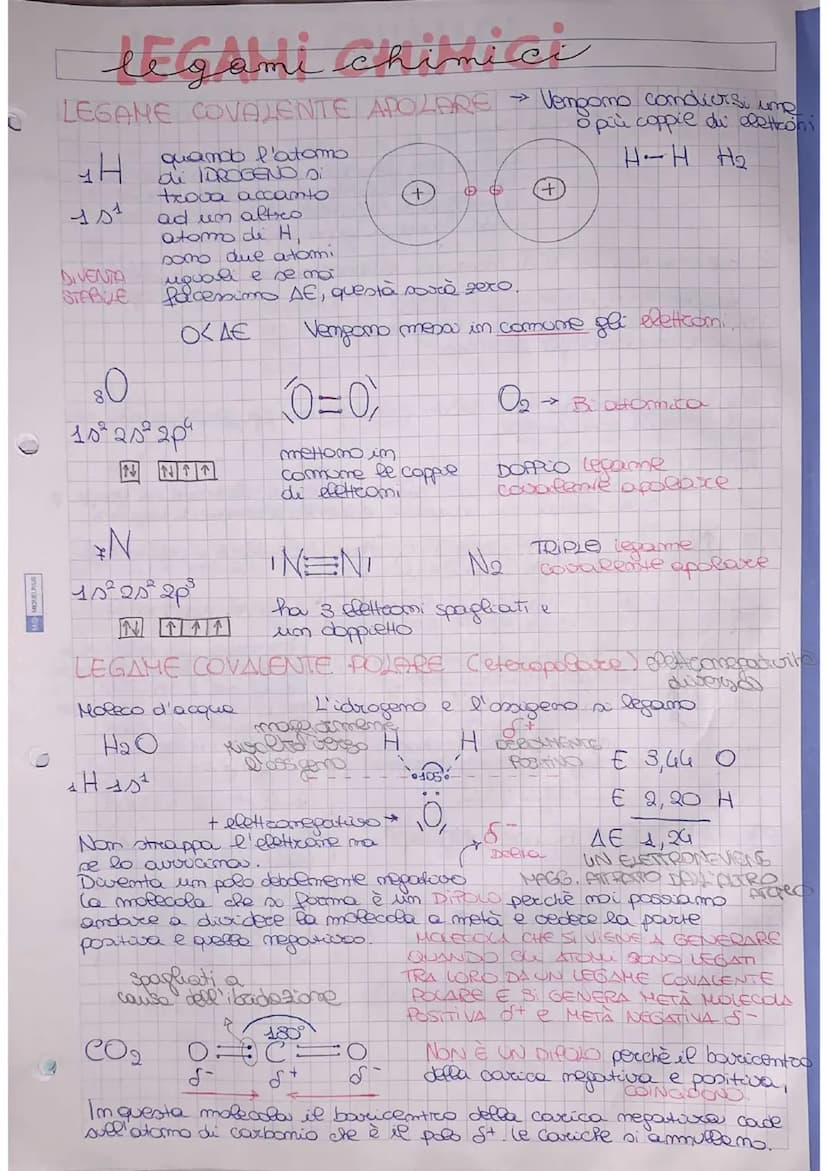 LEGAMI CHIMICI
legami chimici
LEGAME COVALENTE APOLARE → Vengono condivisi una
o più coppie di elettroni
1H
quando l'atomo
di IDROGENO si
trova accanto
ad un altro
atomo di H,
sono due atomi
uguali e se noi
facessimo ΔE, questa sarà zero.
1s¹
DIVENTA
STABILE
+ +
H-H H2
0<ΔE Vengono messi in comune gli elettroni.
8O
1s² 2s² 2p⁴
O=O
mettono in
comune le coppie
di elettroni
O2 → Biatomica
DOPPIO legame
covalente apolare
7N
1s² 2s² 2p³
N≡N
ha 3 elettroni spagliati e
un doppietto
N2
TRIPLO legame
covalente apolare
MQ MIQUELRIUS
LEGAME COVALENTE POLARE (eteropolare) elettronegatività
diversa
Moleco d'acqua L'idrogeno e l'ossigeno si legano
H2O
1H 1s¹
maggiormente
verso
l'ossigeno
H H
105°
O
δ+
DEBOLMENTE
POSITIVO
€ 3,44 O
€ 2,20 H
ΔE 1,24
+ elettronegativo →
δ-
Delta
UN ELETTRONE VIENE
MAGG. ATTRATTO DALL'ALTRO
ATOMO
Non strappa l'elettrone ma
se lo avvicina.
Diventa un polo debolmente negativo
La molecola che si forma è un DIPOLO perchè noi possiamo
andare a dividere la molecola a metà e vedere la parte
positiva e quella negativa.
MOLECOLA CHE SI VIENE A GENERARE
QUANDO GLI ATOMI SONO LEGATI
TRA LORO DA UN LEGAME COVALENTE
POLARE E SI GENERA METÀ MOLECOLA
POSITIVA δ+ e METÀ NEGATIVA δ-
spagliati a
causa dell'ibridazione
180°
CO2 O=C=O
δ- δ+ δ-
NON È UN DIPOLO perchè il baricentro
della carica negativa e positiva,
COINCIDONO
In questa molecola il baricentro della carica negativa cade
sull'atomo di carbonio che è il polo δ+. Le cariche si annullano.